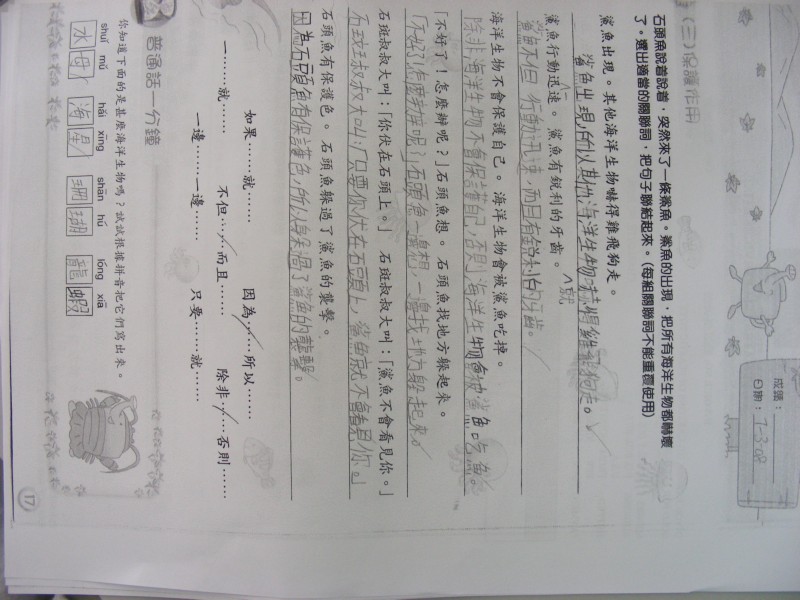 (三)保護作用
成績:
日期:7-3-08
石頭魚說着說着,突然來了一條鯊魚。鯊魚的出現,把所有海洋生物都嚇壞
了。選出適當的關聯詞,把句子聯結起來。(每組關聯詞不能重覆使用)
鯊魚出現。其他海洋生物嚇得雞飛狗走。
鯊魚行動迅速。鯊魚有銳利的牙齒。
而且有銳利的牙齒。
海洋生物不會保護自己。海洋生物會被鯊魚吃掉。
除非海洋生物不會保護自己,否則海洋生物會被鯊魚吃
「不好了!怎麼辦呢?」石頭魚想。石頭魚找地方躲起來。
「不好了!怎麼辦呢?」石頭魚一邊想,一邊找地方躲起來。
石斑叔叔大叫:「你伏在石頭上。」 石斑叔叔大叫:「鯊魚不會看見你。」
石斑叔叔大叫:「只要你伏在石頭上,鯊魚就不會看見你。」
石頭魚有保護色。石頭魚躲過了鯊魚的襲擊。
因為石頭魚有保護色,所以石頭魚躲過了鯊魚的襲擊。
如果……就…… 因為……所以……
一……就…… 不但……而且…… 除非……否則……
一邊……一邊…… 只要……就……
普通話一分鐘
你知道下面的是甚麼海洋生物嗎?試試根據拼音把它們寫出來。
shuǐ mǔ hǎi xīng shān hú lóng xiā
水母 海星 珊瑚 龍蝦
17